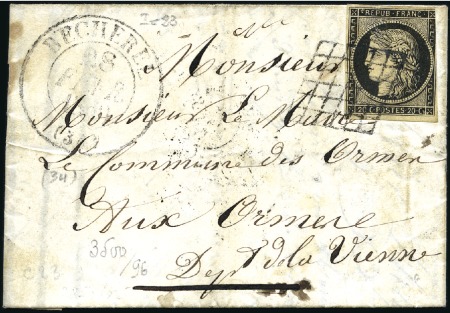 2-23
BECHEREL
28
REPUB. FRANC.
20 c POSTES 20 c
Monsieur
Monsieur Le Maire
Le Commune des Ormes
(34)
Aux Ormes
3500
/96
Dept de la Vienne